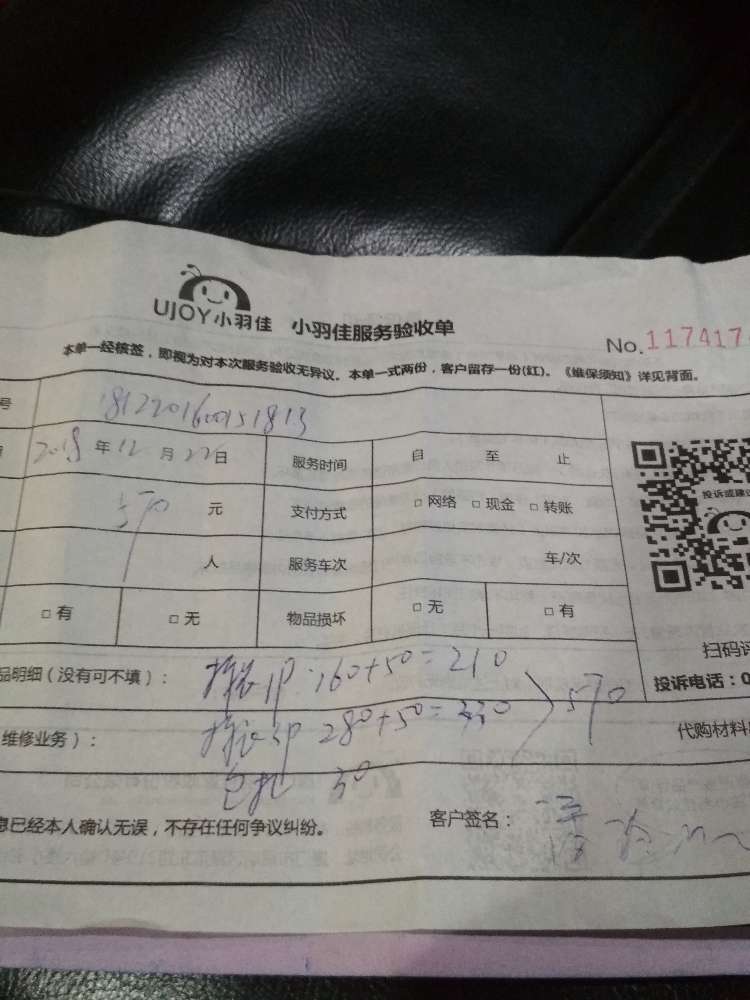 UJOY小羽佳 小羽佳服务验收单
No.117417
本单一经核签，即视为对本次服务验收无异议。本单一式两份，客户留存一份(红)。《维保须知》详见背面。
号 1812201600151813
2018年12月22日 服务时间 自 至 止
570元 支付方式 □网络 □现金 □转账
人 服务车次 车/次
□有 □无 物品损坏 □无 □有
投诉或建
扫码评
品明细（没有可不填）： 拆装1P 160+50=210
投诉电话：0
维修业务）： 拆装3P 280+50=330 570
代购材料
包扎 30
息已经本人确认无误，不存在任何争议纠纷。 客户签名：